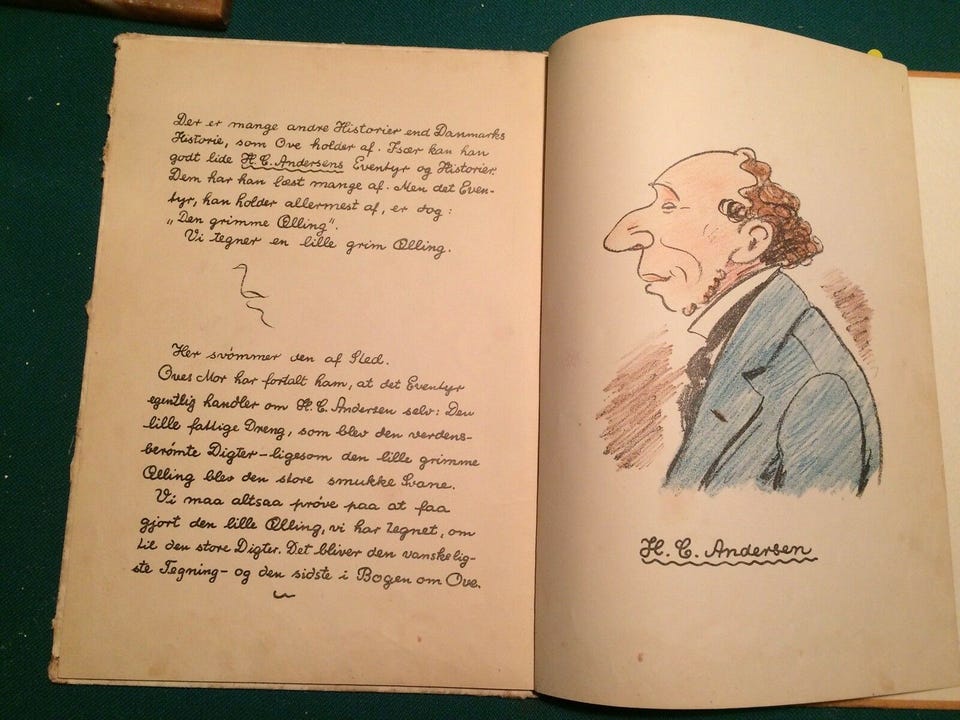 Der er mange andre Historier end Danmarks
Historie, som Ove holder af. Især kan han
godt lide H.C. Andersens Eventyr og Historier.
Dem har han læst mange af. Men det Even-
tyr, han holder allermest af, er dog:
„Den grimme Ælling".
Vi tegner en lille grim Ælling.
Her svömmer den af Sted.
Oves Mor har fortalt ham, at det Eventyr
egentlig handler om H.C. Andersen selv: Den
lille fattige Dreng, som blev den verdens-
berömte Digter – ligesom den lille grimme
Ælling blev den store smukke Svane.
Vi maa altsaa pröve paa at faa
gjort den lille Ælling, vi har tegnet, om
til den store Digter. Det bliver den vanskelig-
ste Tegning – og den sidste i Bogen om Ove.
H. C. Andersen